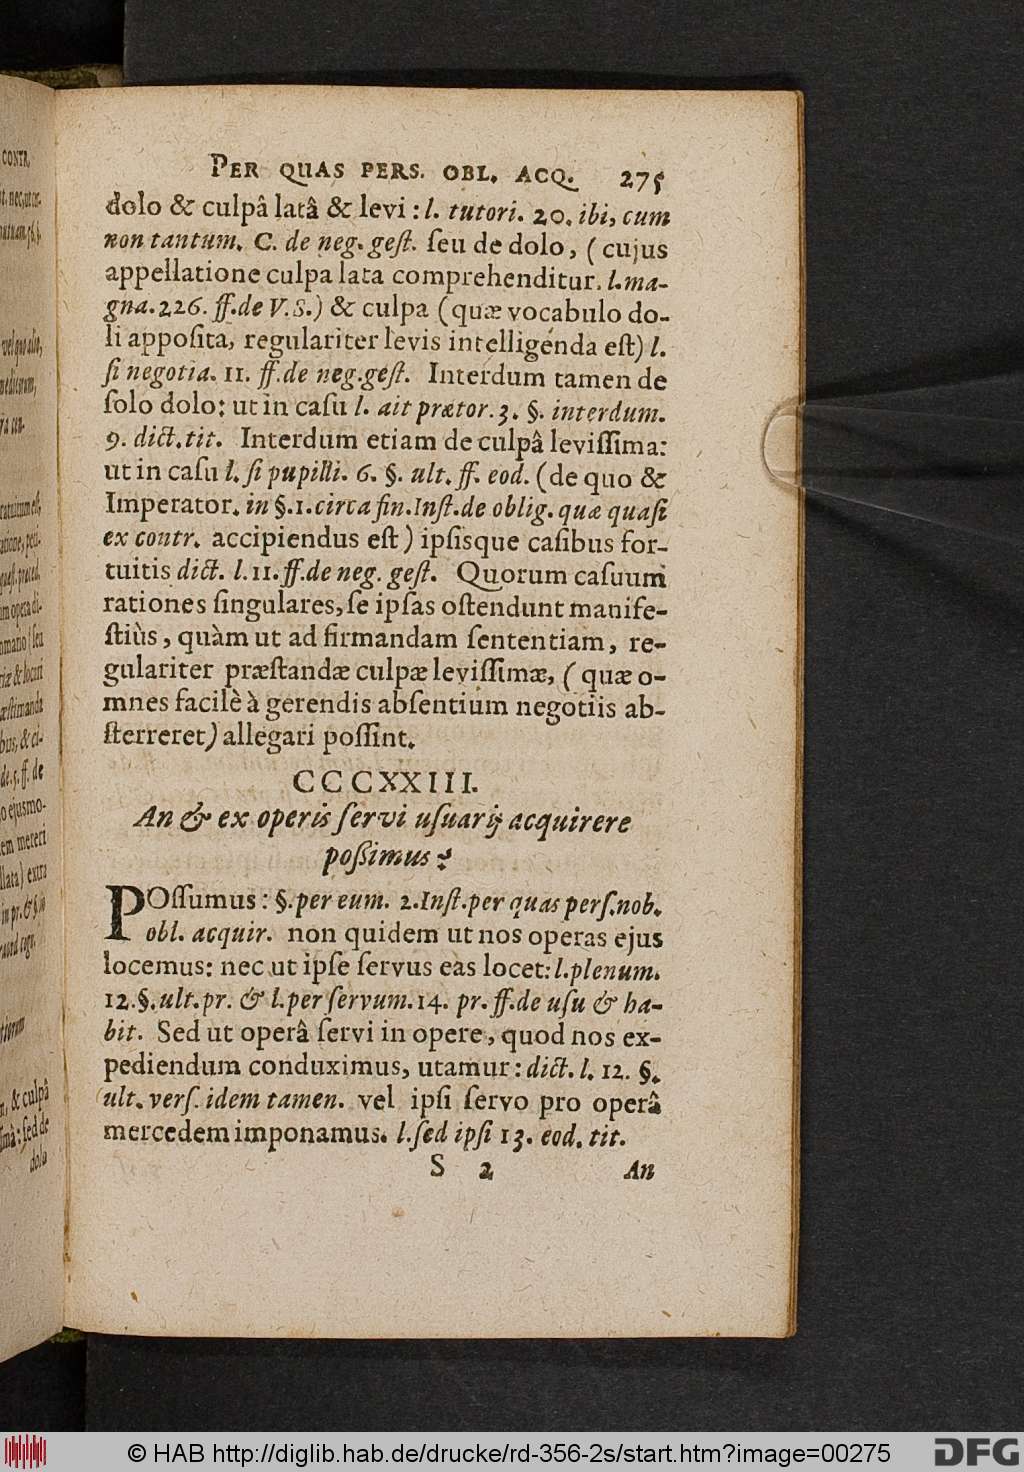 PER QUAS PERS. OBL. ACQ. 275
dolo & culpâ latâ & levi: l. tutori. 20. ibi, cum
non tantum. C. de neg. gest. seu de dolo, (cujus
appellatione culpa lata comprehenditur. l. ma-
gna. 226. ff. de V. S.) & culpa (quæ vocabulo do-
li apposita, regulariter levis intelligenda est) l.
si negotia. 11. ff. de neg. gest. Interdum tamen de
solo dolo: ut in casu l. ait prætor. 3. §. interdum.
9. dict. tit. Interdum etiam de culpâ levissima:
ut in casu l. si pupilli. 6. §. ult. ff. eod. (de quo &
Imperator. in §. 1. circa fin. Inst. de oblig. quæ quasi
ex contr. accipiendus est) ipsisque casibus for-
tuitis dict. l. 11. ff. de neg. gest. Quorum casuum
rationes singulares, se ipsas ostendunt manife-
stiùs, quàm ut ad firmandam sententiam, re-
gulariter præstandæ culpæ levissimæ, (quæ o-
mnes facilè à gerendis absentium negotiis ab-
sterreret) allegari possint.
CCCXXIII.
An & ex operis servi usuarij acquirere
possimus?
POssumus: §. per eum. 2. Inst. per quas pers. nob.
obl. acquir. non quidem ut nos operas ejus
locemus: nec ut ipse servus eas locet: l. plenum.
12. §. ult. pr. & l. per servum. 14. pr. ff. de usu & ha-
bit. Sed ut operâ servi in opere, quod nos ex-
pediendum conduximus, utamur: dict. l. 12. §.
ult. vers. idem tamen. vel ipsi servo pro operâ
mercedem imponamus. l. sed ipsi 13. eod. tit.
S 2 An
© HAB http://diglib.hab.de/drucke/rd-356-2s/start.htm?image=00275
DFG